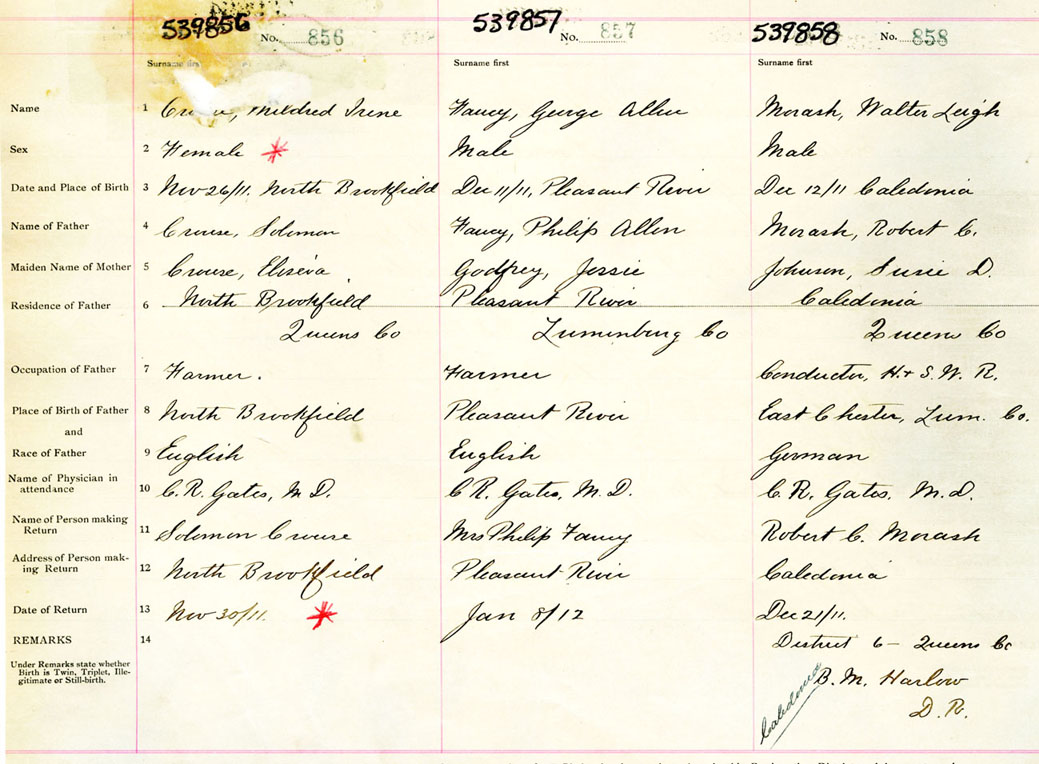 539856 No. 856 539857 No. 857 539858 No. 858
Surname first Surname first Surname first
Name 1 Mildred Irene Fancy, George Allen Morash, Walter Leigh
Sex 2 Female * Male Male
Date and Place of Birth 3 Nov 26/11, North Brookfield Dec 11/11, Pleasant River Dec 12/11 Caledonia
Name of Father 4 Crouse, Solomon Fancy, Philip Allen Morash, Robert C.
Maiden Name of Mother 5 Crouse, Eliseva Godfrey, Jessie Johnson, Susie D.
Residence of Father 6 North Brookfield Pleasant River Caledonia
Queens Co Lunenburg Co Queens Co
Occupation of Father 7 Farmer. Farmer Conductor, H. + S. W. R.
Place of Birth of Father 8 North Brookfield Pleasant River East Chester, Lun. Co.
and
Race of Father 9 English English German
Name of Physician in
attendance 10 C. R. Gates, M. D. C R. Gates, M. D. C. R. Gates. M. d.
Name of Person making
Return 11 Solomon Crouse Mrs Philip Fancy Robert C. Morash
Address of Person mak-
ing Return 12 North Brookfield Pleasant River Caledonia
Date of Return 13 Nov 30/11. * Jan 8/12 Dec 21/11.
REMARKS 14 District 6 – Queens Co
Under Remarks state whether
Birth is Twin, Triplet, Ille-
gitimate or Still-birth.
Caledonia B. M. Harlow
D. R.